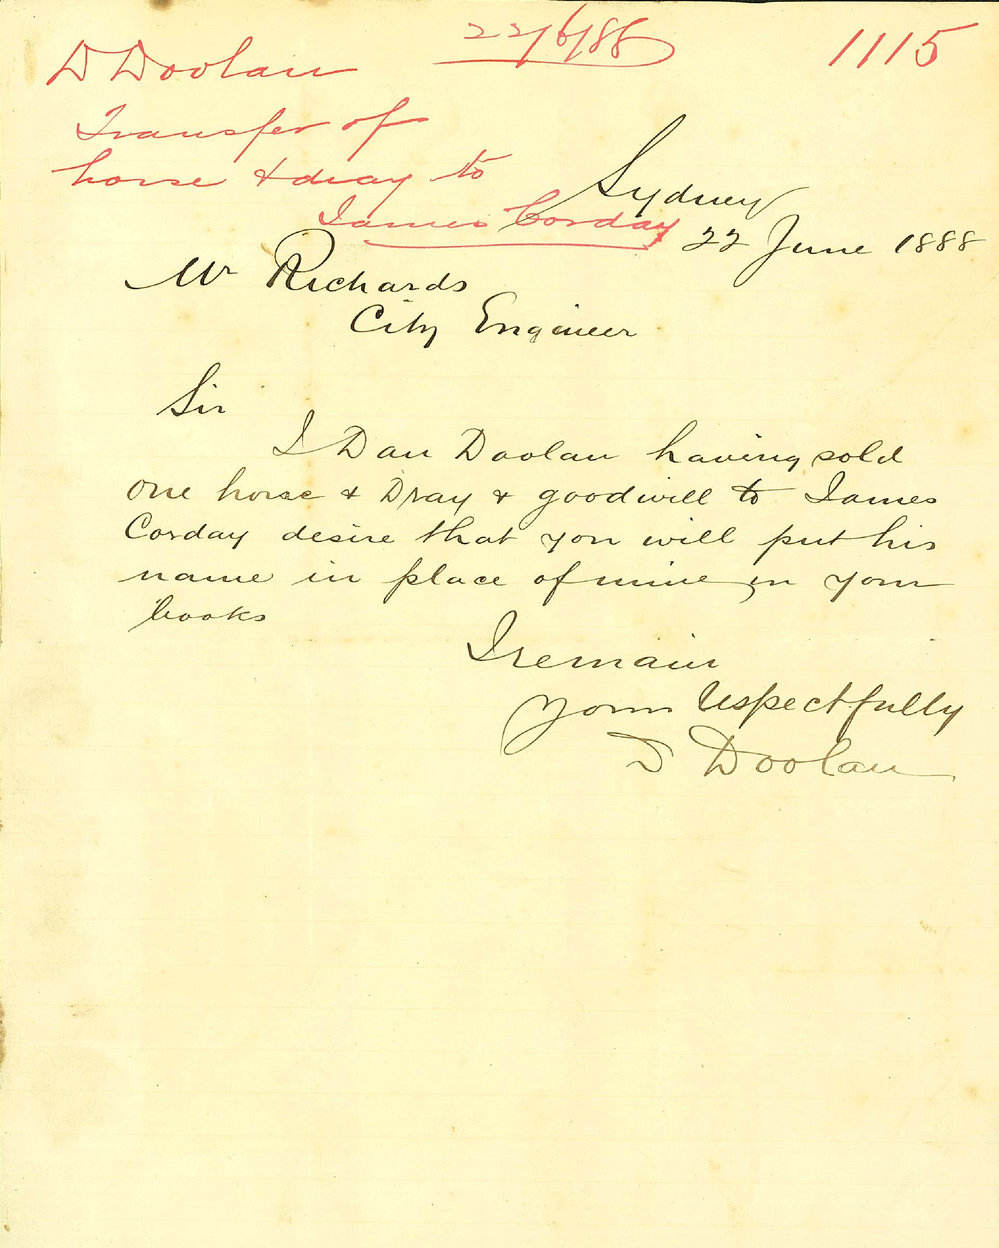 22/6/88
1115
D Doolan
Transfer of
horse & dray to
James Corday
Sydney
22 June 1888
Mr Richards
City Engineer
Sir
I Dan Doolan having sold
one horse & Dray & goodwill to James
Corday desire that you will put his
name in place of mine in your
books
I remain
Yours respectfully
D Doolan